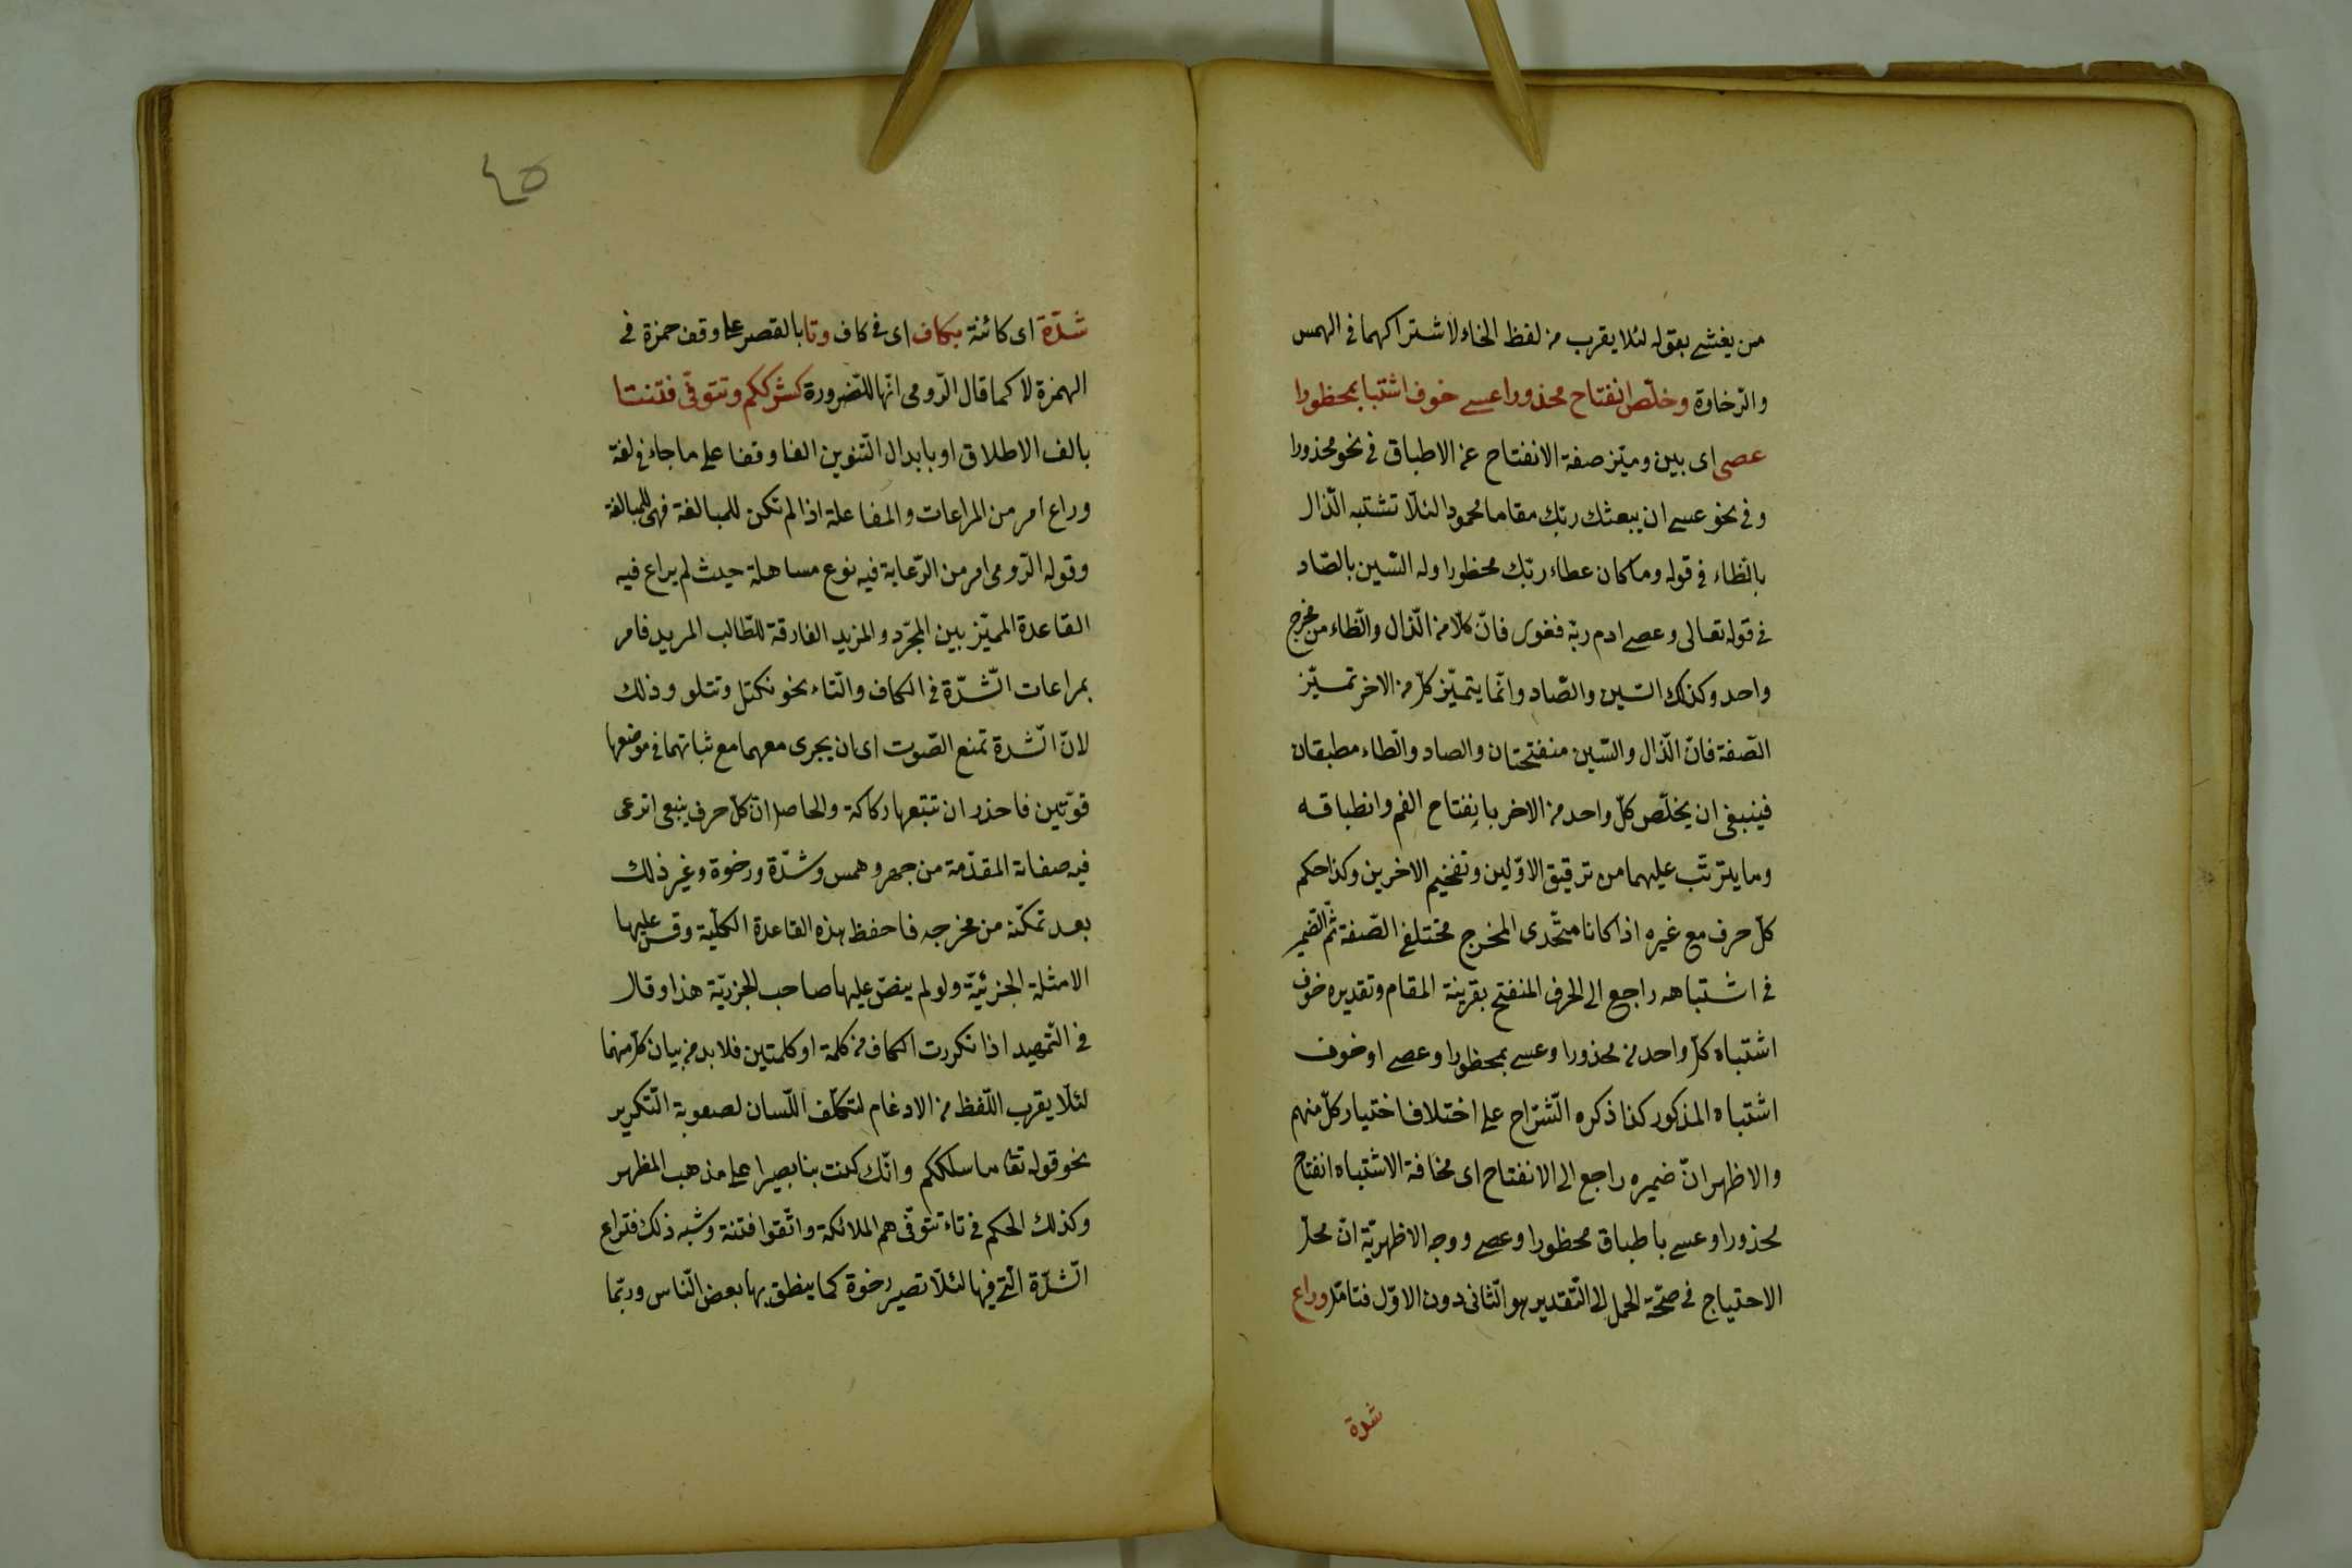 من يغشى بقوله لئلا يقرب من لفظ الخاء لاشتراكهما فى الهمس
والرّخاوة وخلّص انفتاح محذورا عسى خوف اشتبا بمحظورا
عصى اى بين وميّز صفة الانفتاح عن الاطباق فى نحو محذورا
وفى نحو عسى ان يبعثك ربّك مقاما محمودا لئلّا تشتبه الذّال
بالظّاء فى قوله وما كان عطاء ربّك محظورا وله السّين بالصّاد
فى قوله تعالى وعصى ادم ربّه فغوى فانّ كلّا من الذّال والظّاء من مخرج
واحد وكذلك السّين والصّاد وانّما يتميّز كلّ من الاخر تميّز
الصّفة فانّ الذّال والسّين منفتحتان والصاد والطاء مطبقتان
فينبغى ان يخلّص كلّ واحد من الاخر بانفتاح الفم وانطباقه
وما يترتّب عليهما من ترقيق الاوّلين وتفخيم الاخرين وكذا حكم
كلّ حرف مع غيره اذا كانا متّحدى المخرج مختلفى الصّفة ثمّ الضّمير
فى اشتباهه راجع الى الحرف المنفتح بقرينة المقام وتقديره خوف
اشتباه كلّ واحد من محذورا وعسى بمحظورا وعصى او خوف
اشتباه المذكور كذا ذكره الشّرّاح على اختلاف اختيار كلّ منهم
والاظهر انّ ضميره راجع الى الانفتاح اى مخافة الاشتباه انفتاح
محذورا وعسى باطباق محظورا وعصى ووجه الاظهريّة انّ محلّ
الاحتياج فى صحّة الحمل الى التّقدير هو الثّانى دون الاوّل فتامّل وراع
شدة
٤٥
شدّة اى كائنة بكاف اى فى كاف وتا بالقصر على وقف حمزة فى
الهمزة لا كما قال الرّومى انّها للضّرورة كشرككم وتتوفّى فتنتا
بالف الاطلاق او بابدال التّنوين الفا وقفا على ما جاء فى لغة
وراع امر من المراعات والمفاعلة اذا لم تكن للمبالغة فهى للمبالغة
وقوله الرّومى امر من الرّعاية فيه نوع مساهلة حيث لم يراع فيه
القاعدة المميّز بين المجرّد والمزيد الفارقة للطّالب المريد فامر
بمراعات الشّدّة فى الكاف والتّاء نحو نكتل وتتلو وذلك
لانّ الشّدة تمنع الصّوت اى ان يجرى معهما مع ثباتهما فى موضعها
قوّتين فاحذر ان تتبعها ركاكة والحاصل انّ كلّ حرف ينبغى ان يرعى
فيه صفاته المقدّمة من جهر وهمس وشدّة ورخوة وغير ذلك
بعد تمكّنه من مخرجه فاحفظ بهذه القاعدة الكلّية وقس عليها
الامثلة الجزئيّة ولو لم ينصّ عليها صاحب الجزريّة هذا وقال
فى التّمهيد اذا تكررت الكاف من كلمة او كلمتين فلا بد من بيان كلّ منهما
لئلّا يقرب اللّفظ من الادغام لتكلّف اللّسان لصعوبة التّكرير
نحو قوله تعا ما سلككم وانّك كنت بنا بصيرا على مذهب المظهر
وكذلك الحكم فى تاء تتوفّى هم الملائكة واتّقوا فتنة وشبه ذلك فتراع
الشّدّة الّتى فيها لئلّا تصير رخوة كما ينطق بها بعض النّاس وربّما